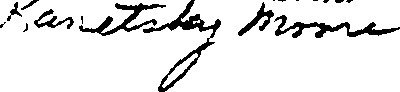 Kanetsky Moore